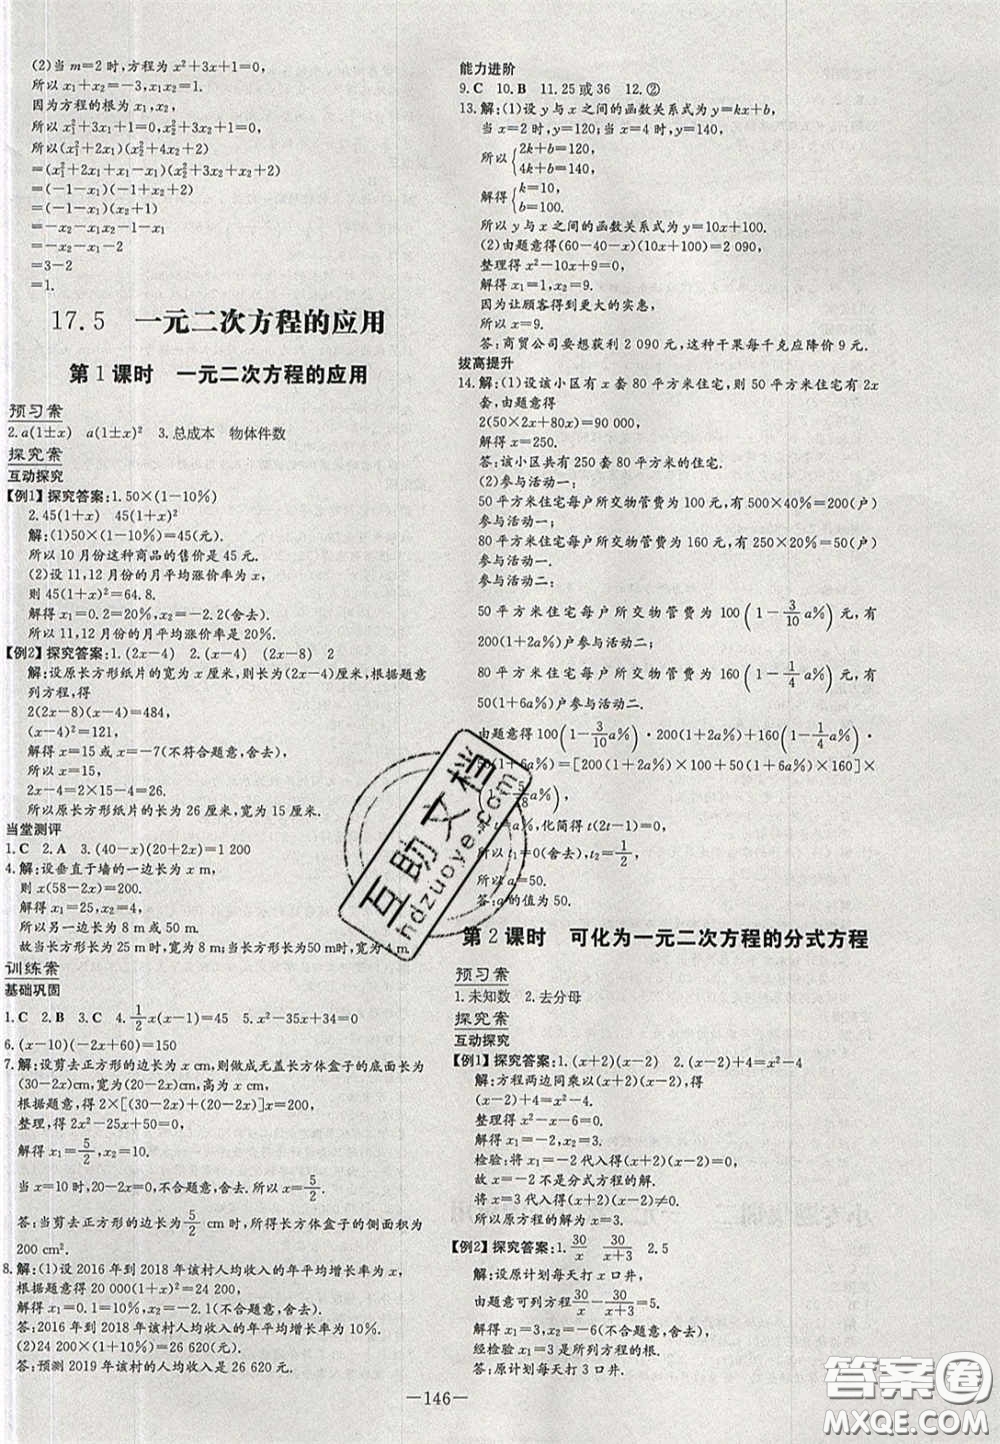 (2)当m=2时,方程为x²+3x+1=0,
所以x₁+x₂=-3,x₁x₂=1.
因为方程的根为x₁,x₂,
所以x₁²+3x₁+1=0,x₂²+3x₂+1=0,
所以(x₁²+2x₁)(x₂²+4x₂+2)
=(x₁²+2x₁+x₁-x₁)(x₂²+3x₂+x₂+2)
=(-1-x₁)(-1+x₂+2)
=(-1-x₁)(x₂+1)
=-x₂-x₁x₂-1-x₁
=-x₂-x₁-2
=3-2
=1.
17.5 一元二次方程的应用
第1课时 一元二次方程的应用
预习案
2.a(1±x) a(1±x)² 3.总成本 物体件数
探究案
互动探究
【例1】探究答案:1.50×(1-10%)
2.45(1+x) 45(1+x)²
解:(1)50×(1-10%)=45(元).
所以10月份这种商品的售价是45元.
(2)设11,12月份的月平均涨价率为x,
则45(1+x)²=64.8.
解得x₁=0.2=20%,x₂=-2.2(舍去).
所以11,12月份的月平均涨价率是20%.
【例2】探究答案:1.(2x-4) 2.(x-4) (2x-8) 2
解:设原长方形纸片的宽为x厘米,则长为(2x-4)厘米,根据题意
列方程,得
2(2x-8)(x-4)=484,
(x-4)²=121,
解得x=15或x=-7(不符合题意,舍去).
所以x=15.
2x-4=2×15-4=26.
所以原长方形纸片的长为26厘米,宽为15厘米.
当堂测评
1.C 2.A 3.(40-x)(20+2x)=1 200
4.解:设垂直于墙的一边长为x m,
则x(58-2x)=200.
解得x₁=25,x₂=4,
所以另一边长为8 m或50 m.
故当长方形长为25 m时,宽为8 m;当长方形长为50 m时,宽为4 m.
训练案
基础巩固
1.C 2.B 3.C 4.1/2x(x-1)=45 5.x²-35x+34=0
6.(x-10)(-2x+60)=150
7.解:设剪去正方形的边长为x cm,则做成无盖长方体盒子的底面长为
(30-2x)cm,宽为(20-2x)cm,高为x cm,
根据题意,得2×[(30-2x)+(20-2x)]x=200,
整理,得2x²-25x+50=0,
解得x₁=5/2,x₂=10.
当x=10时,20-2x=0,不合题意,舍去.所以x=5/2.
答:当剪去正方形的边长为5/2cm时,所得长方体盒子的侧面积为
200 cm².
8.解:(1)设2016年到2018年该村人均收入的年平均增长率为x,
根据题意得20 000(1+x)²=24 200,
解得x₁=0.1=10%,x₂=-2.1(不合题意,舍去).
答:2016年到2018年该村人均收入的年平均增长率为10%.
(2)24 200×(1+10%)=26 620(元).
答:预测2019年该村的人均收入是26 620元.
能力进阶
9.C 10.B 11.25或36 12.②
13.解:(1)设y与x之间的函数关系式为y=kx+b,
当x=2时,y=120;当x=4时,y=140,
所以{2k+b=120,
4k+b=140,
解得{k=10,
b=100.
所以y与x之间的函数关系式为y=10x+100.
(2)由题意得(60-40-x)(10x+100)=2 090,
整理得x²-10x+9=0,
解得x₁=1,x₂=9.
因为让顾客得到更大的实惠,
所以x=9.
答:商贸公司要想获利2 090元,这种干果每千克应降价9元.
拔高提升
14.解:(1)设该小区有x套80平方米住宅,则50平方米住宅有2x
套,由题意得
2(50×2x+80x)=90 000,
解得x=250.
答:该小区共有250套80平方米的住宅.
(2)参与活动一:
50平方米住宅每户所交物管费为100元,有500×40%=200(户)
参与活动一;
80平方米住宅每户所交物管费为160元,有250×20%=50(户)
参与活动一.
参与活动二:
50平方米住宅每户所交物管费为100(1-3/10a%)元,有
200(1+2a%)户参与活动二;
80平方米住宅每户所交物管费为160(1-1/4a%)元,有
50(1+6a%)户参与活动二.
由题意得100(1-3/10a%)·200(1+2a%)+160(1-1/4a%)·
50(1+6a%)=[200(1+2a%)×100+50(1+6a%)×160]×
5/18a%),
令t=a%,化简得t(2t-1)=0,
所以t₁=0(舍去),t₂=1/2,
所以a=50.
答:a的值为50.
第2课时 可化为一元二次方程的分式方程
预习案
1.未知数 2.去分母
探究案
互动探究
【例1】探究答案:1.(x+2)(x-2) 2.(x-2)+4=x²-4
解:方程两边同乘以(x+2)(x-2),得
(x-2)+4=(x+2)(x-2).
整理得x²-x-6=0.
解得x₁=-2,x₂=3.
检验:将x=-2代入得(x+2)(x-2)=0.
故x=-2不是分式方程的解.
将x=3代入得(x+2)(x-2)≠0,
所以原方程的解为x=3.
【例2】探究答案:1.30/x 30/(x+3) 2.5
解:设原计划每天打x口井,
由题意可列方程30/x-30/(x+3)=5.
解得x₁=3,x₂=-6(不合题意,舍去).
经检验x=3是所列方程的根.
答:原计划每天打3口井.
—146—
互助文档
hdzuoye.com
答案圈
MXQE.COM